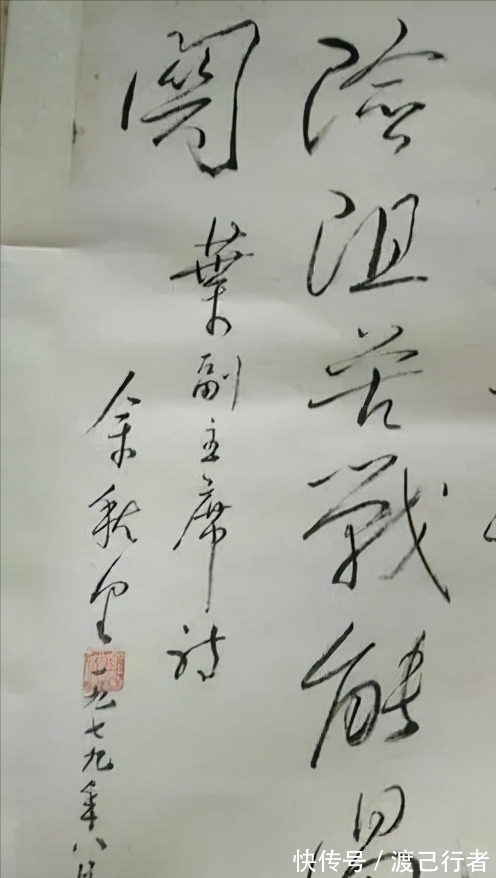 險阻苦戰能過
關
葉副主席詩
余秋里
一九七九年八月
快传号 / 渡己行者